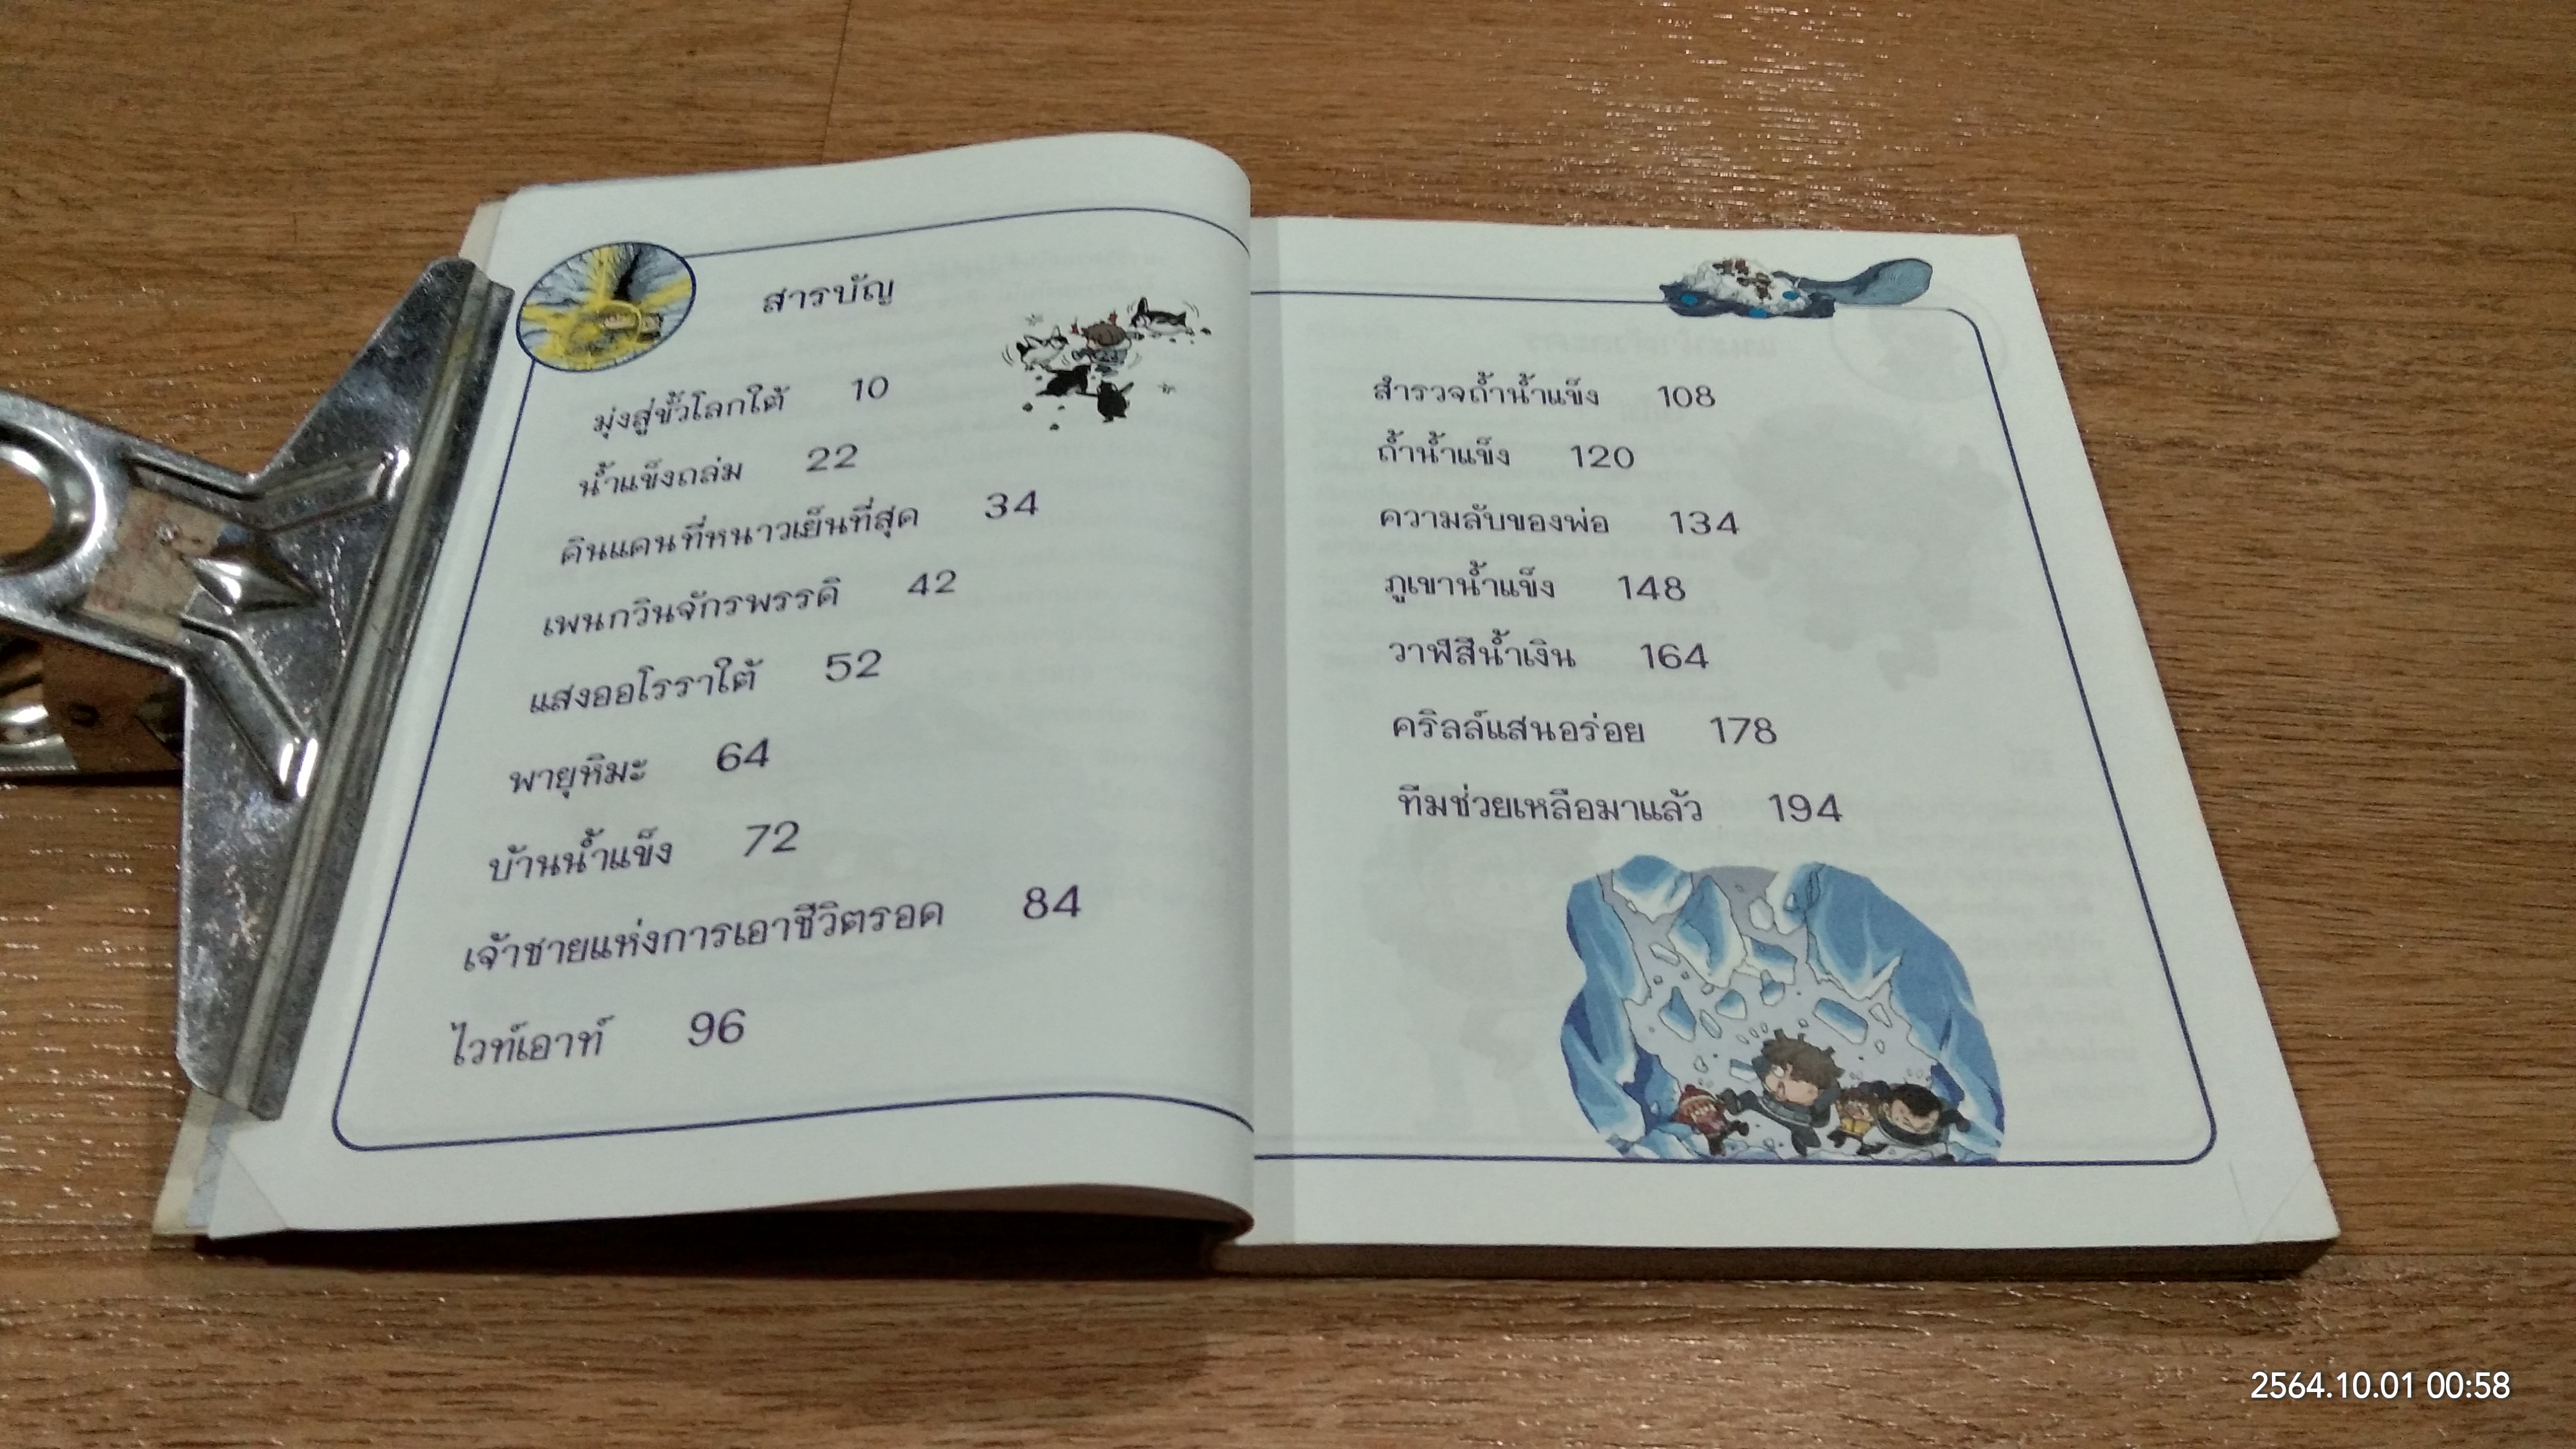 สารบัญ
มุ่งสู่ขั้วโลกใต้ 10
น้ำแข็งถล่ม 22
ดินแดนที่หนาวเย็นที่สุด 34
เพนกวินจักรพรรดิ 42
แสงออโรราใต้ 52
พายุหิมะ 64
บ้านน้ำแข็ง 72
เจ้าชายแห่งการเอาชีวิตรอด 84
ไวท์เอาท์ 96
สำรวจถ้ำน้ำแข็ง 108
ถ้ำน้ำแข็ง 120
ความลับของพ่อ 134
ภูเขาน้ำแข็ง 148
วาฬสีน้ำเงิน 164
คริลล์แสนอร่อย 178
ทีมช่วยเหลือมาแล้ว 194
2564.10.01 00:58